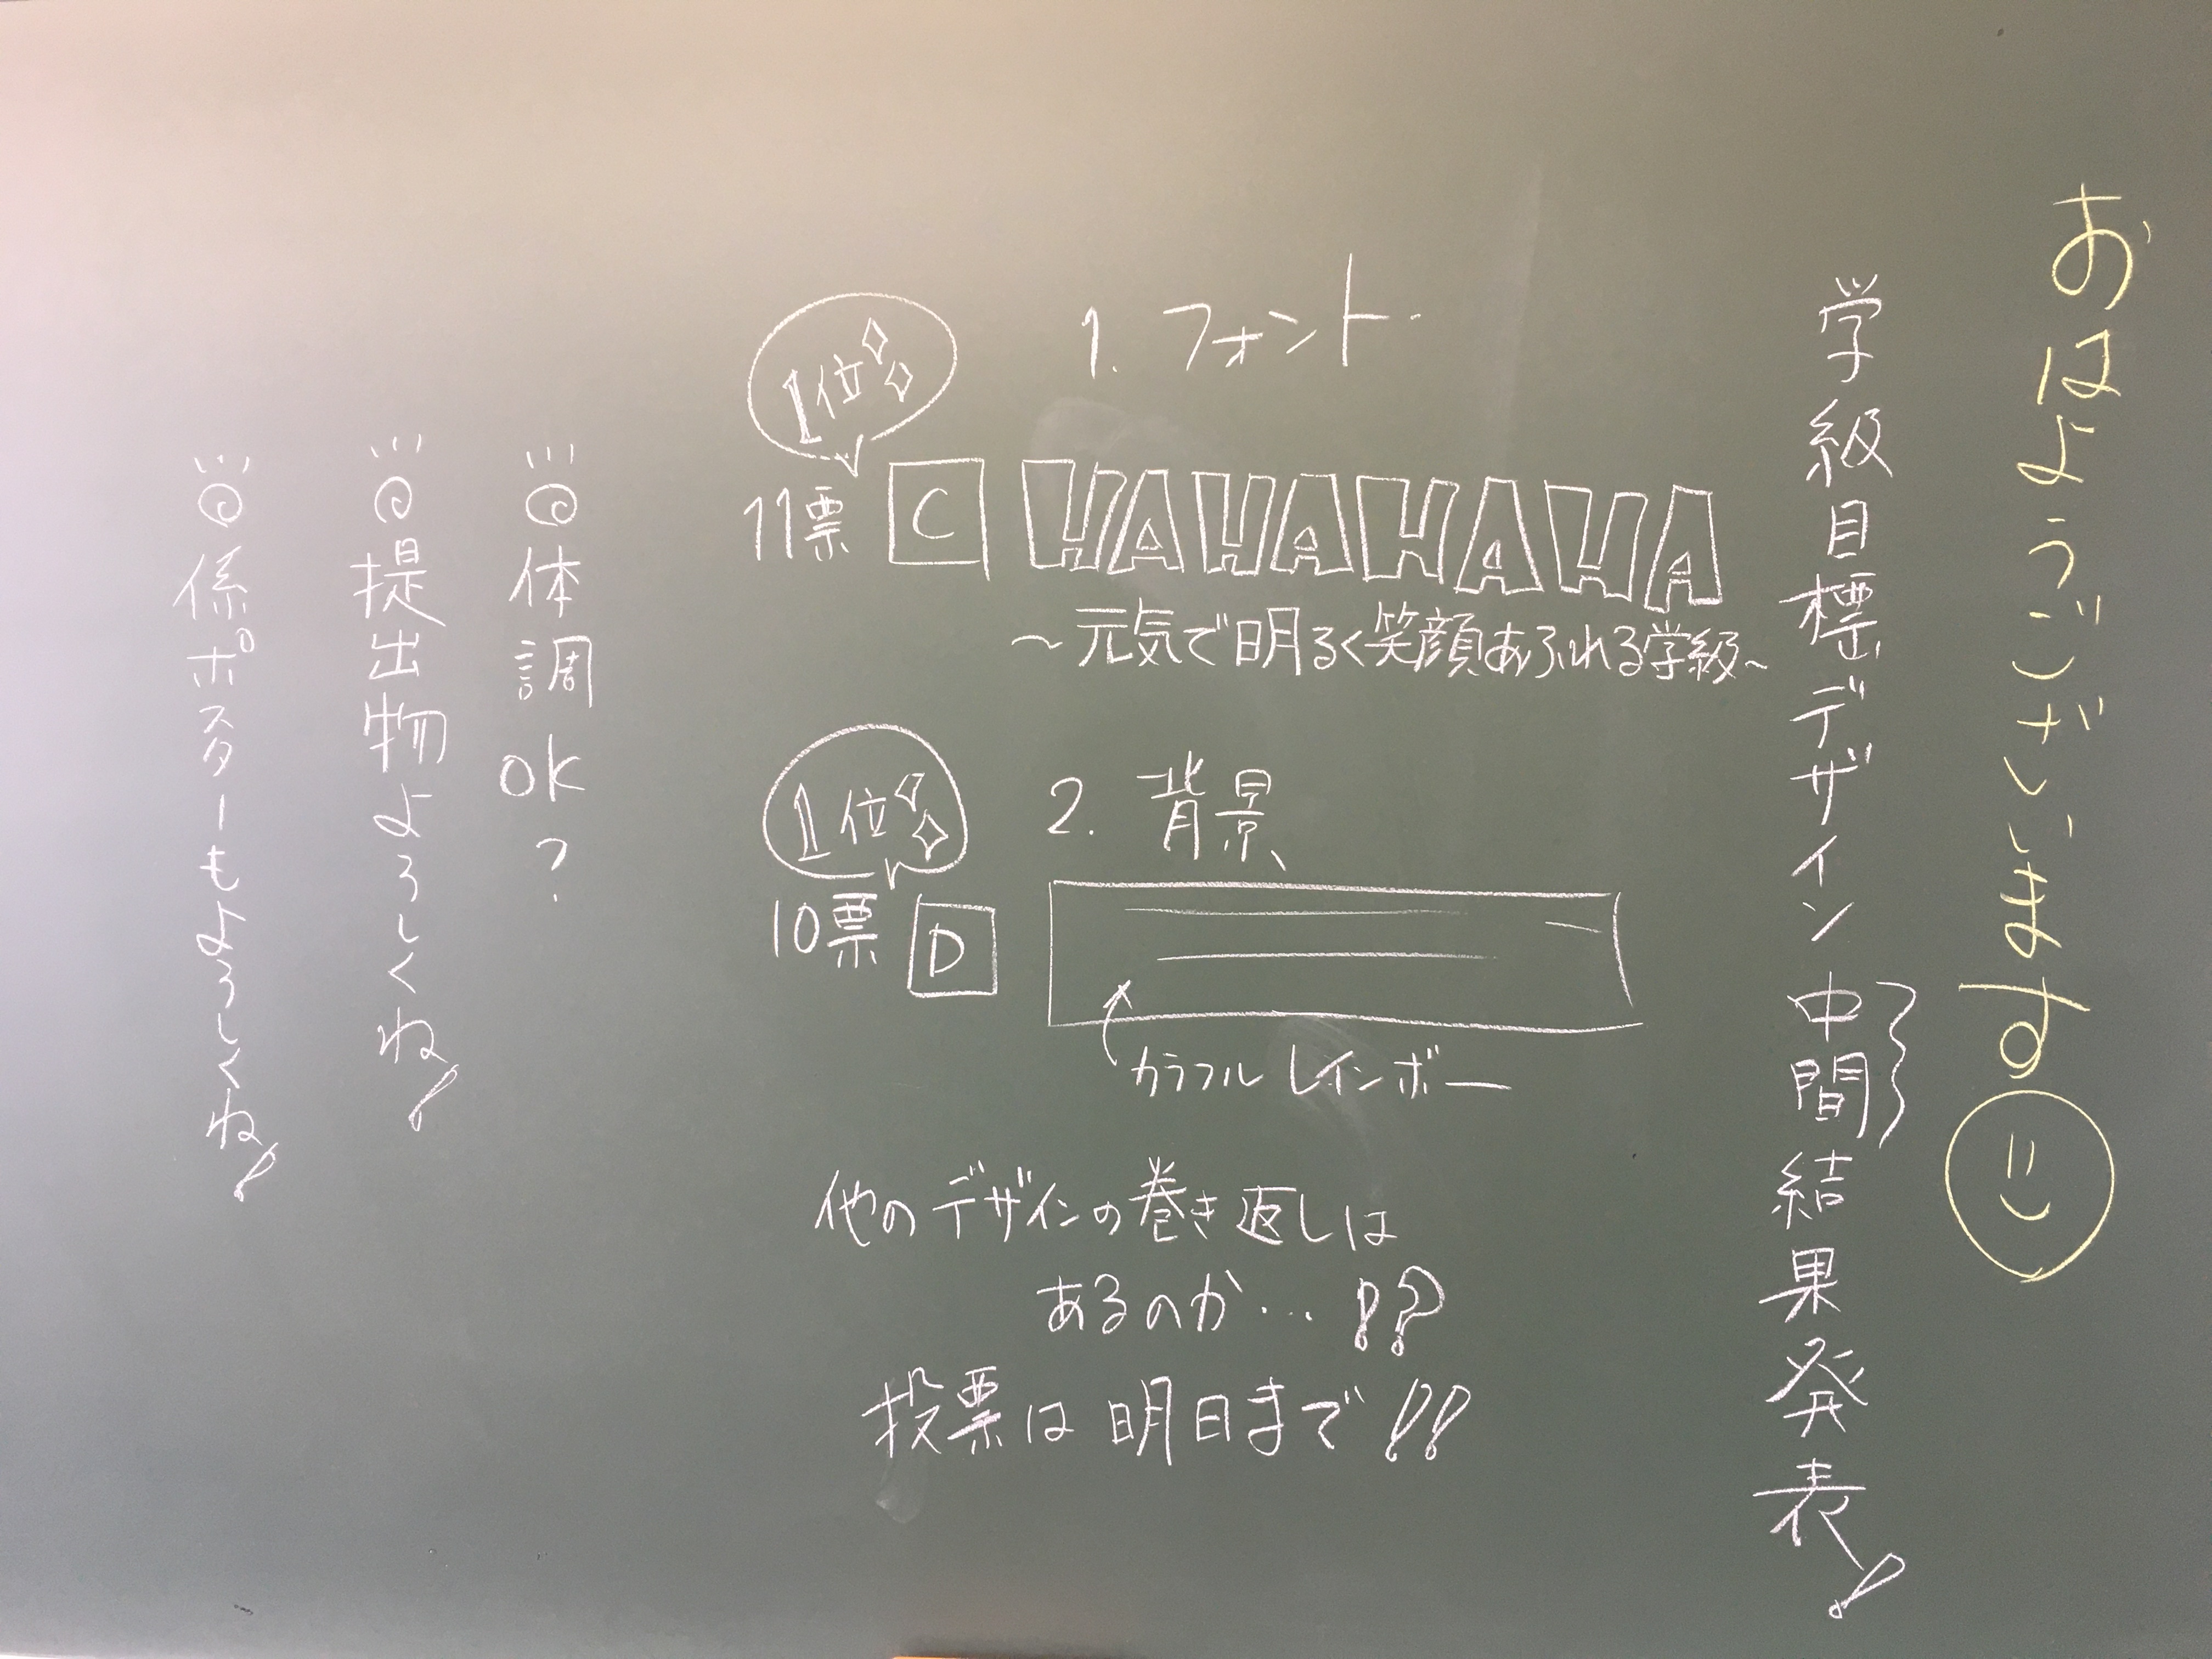 おはようございます
学級目標デザイン中間結果発表!
1. フォント
1位
11票 C HAHAHAHA
～元気で明るく笑顔あふれる学級～
2. 背景
1位
10票 D
カラフルレインボー
他のデザインの巻き返しは
あるのか…!?
投票は明日まで!!
◎体調OK?
◎提出物よろしくね!
◎係ポスターもよろしくね!